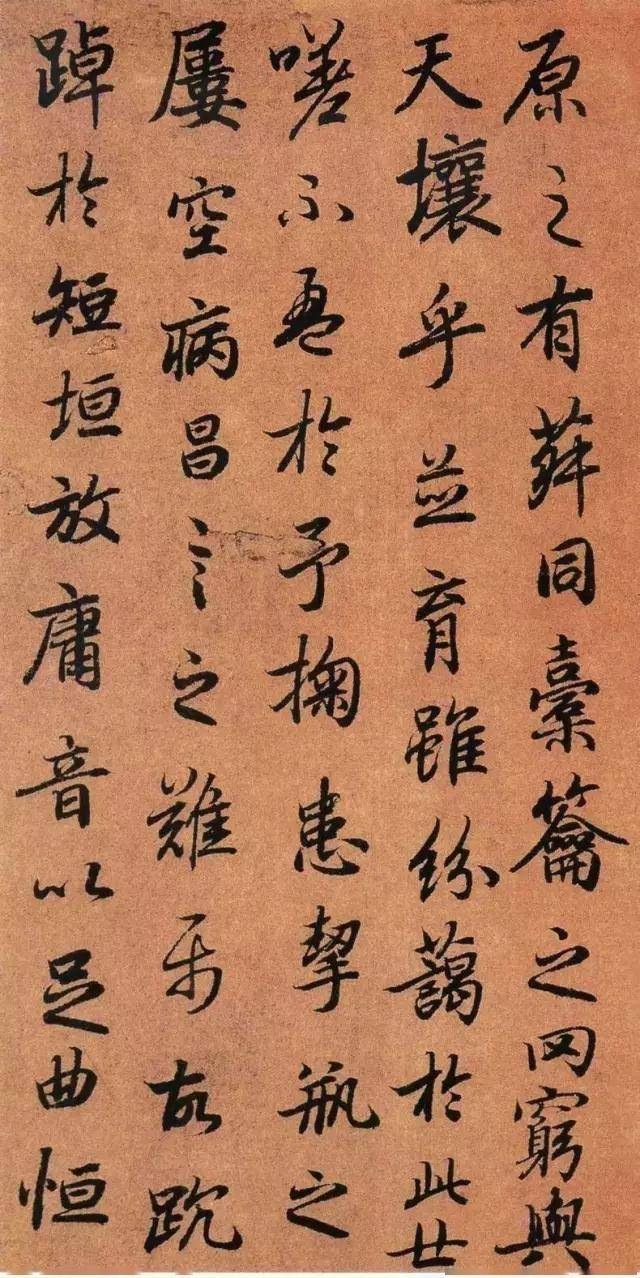 原之有菽同橐籥之罔窮與
天壤乎並育雖紛藹於此世
嗟不盈於予掬患挈瓶之
屢空病昌言之難屬故踸
踔於短垣放庸音以足曲恒